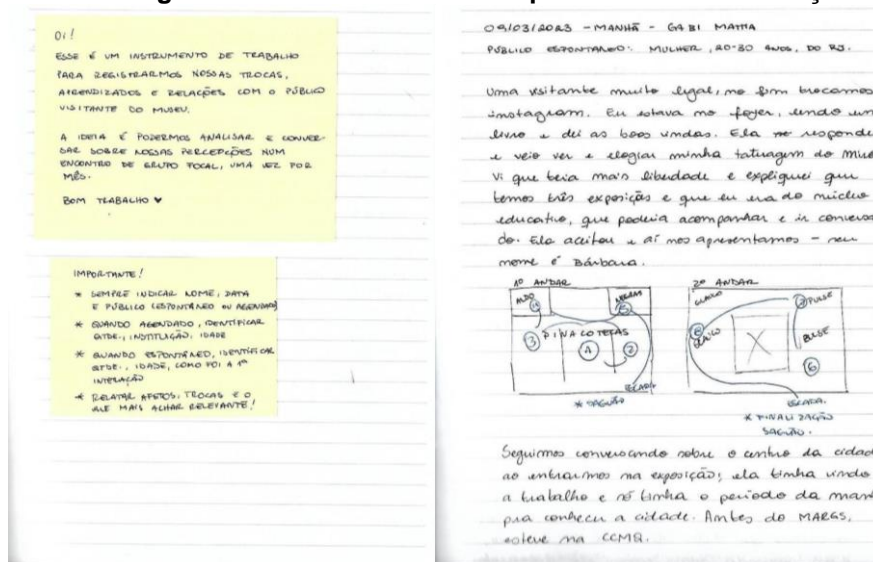 Oi!
ESSE É UM INSTRUMENTO DE TRABALHO
PARA REGISTRARMOS NOSSAS TROCAS,
APRENDIZADOS E RELAÇÕES COM O PÚBLICO
VISITANTE DO MUSEU.
A IDEIA É PODERMOS ANALISAR E CONVER-
SAR SOBRE NOSSAS PERCEPÇÕES NUM
ENCONTRO DE GRUPO FOCAL, UMA VEZ POR
MÊS.
BOM TRABALHO ♥
IMPORTANTE!
* SEMPRE INDICAR NOME, DATA
E PÚBLICO (ESPONTÂNEO OU AGENDADO)
* QUANDO AGENDADO, IDENTIFICAR
QTDE., INSTITUIÇÃO, IDADE
* QUANDO ESPONTÂNEO, IDENTIFICAR
QTDE., IDADE, COMO FOI A 1ª
INTERAÇÃO
* RELATAR AFETOS, TROCAS E O
QUE MAIS ACHAR RELEVANTE!
09/03/2023 - MANHÃ - GABI MATTIA
PÚBLICO ESPONTANEO: MULHER, 20-30 ANOS, DO RJ.
Uma visitante muito legal, no fim trocamos
instagram. Eu estava no foyer, lendo um
livro e dei as boas vindas. Ela me responde
e veio ver e elogiar minha tatuagem do
Vi que teria mais liberdade e expliquei que
temos três exposição e que eu era do núcleo
educativo, que poderia acompanhar e ir conversa
do. Ela aceitou e aí nos apresentamos - seu
nome é Bárbara.
1º ANDAR 2º ANDAR
ALDO
5
NEGRAS
3
PINACOTECAS
1
2
ESCADA
* SAGUÃO
GLAUCO
PULSE
PULSE
6
X
ESCADA.
* FINALIZAÇÃO
SAGUÃO.
Seguimos conversando sobre o centro da cidad
ao entrarmos na exposição; ela tinha vindo
a trabalho e só tinha o período da manh
pra conhecer a cidade. Antes do MARGS,
esteve na CCMQ.